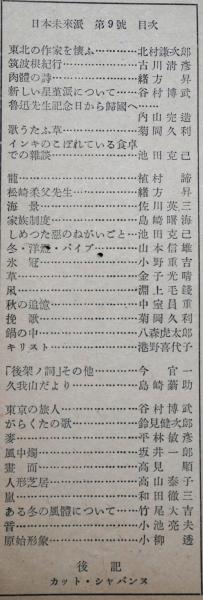 日本未來派 第9號 目次
東北の作家を懐ふ……………北村謙次郎
筑波根紀行……………古川清彦
肉體の詩……………緒方昇
新しい星菫派について……………谷村博武
魯迅先生記念日から歸國へ……
内山完造
歌うたふ草……………菊岡久利
インキのこぼれている食卓
での雜談……………池田克己
龍……………植村諦
松崎柔父先生……………緒方昇
海景……………佐川英三
家族制度……………島崎曙海
しめつた惡のねがいごと……池田克己
冬・洋燈・パイプ……………山本信雄
氷冠……………小野重吉
草……………金子光晴
風……………淵上毛錢
秋の追憶……………中室員重
挽歌……………菊岡久利
鍋の中……………八森虎太郎
キリスト……………港野喜代子
「後架ノ詞」その他……………今官一
久我山だより……………島崎蓊助
東京の旅人……………谷村博武
がらくたの歌……………鈴見健次郎
麥……………平林敏彦
風中燭……………坂井一郎
畫面……………高見順
人形芝居……………高山泰子
嵐……………和田徹三
ある冬の風體について……竹尾大吉
……………小池亮夫
原始形象……………小柳透
後記
カット・シャバンヌ